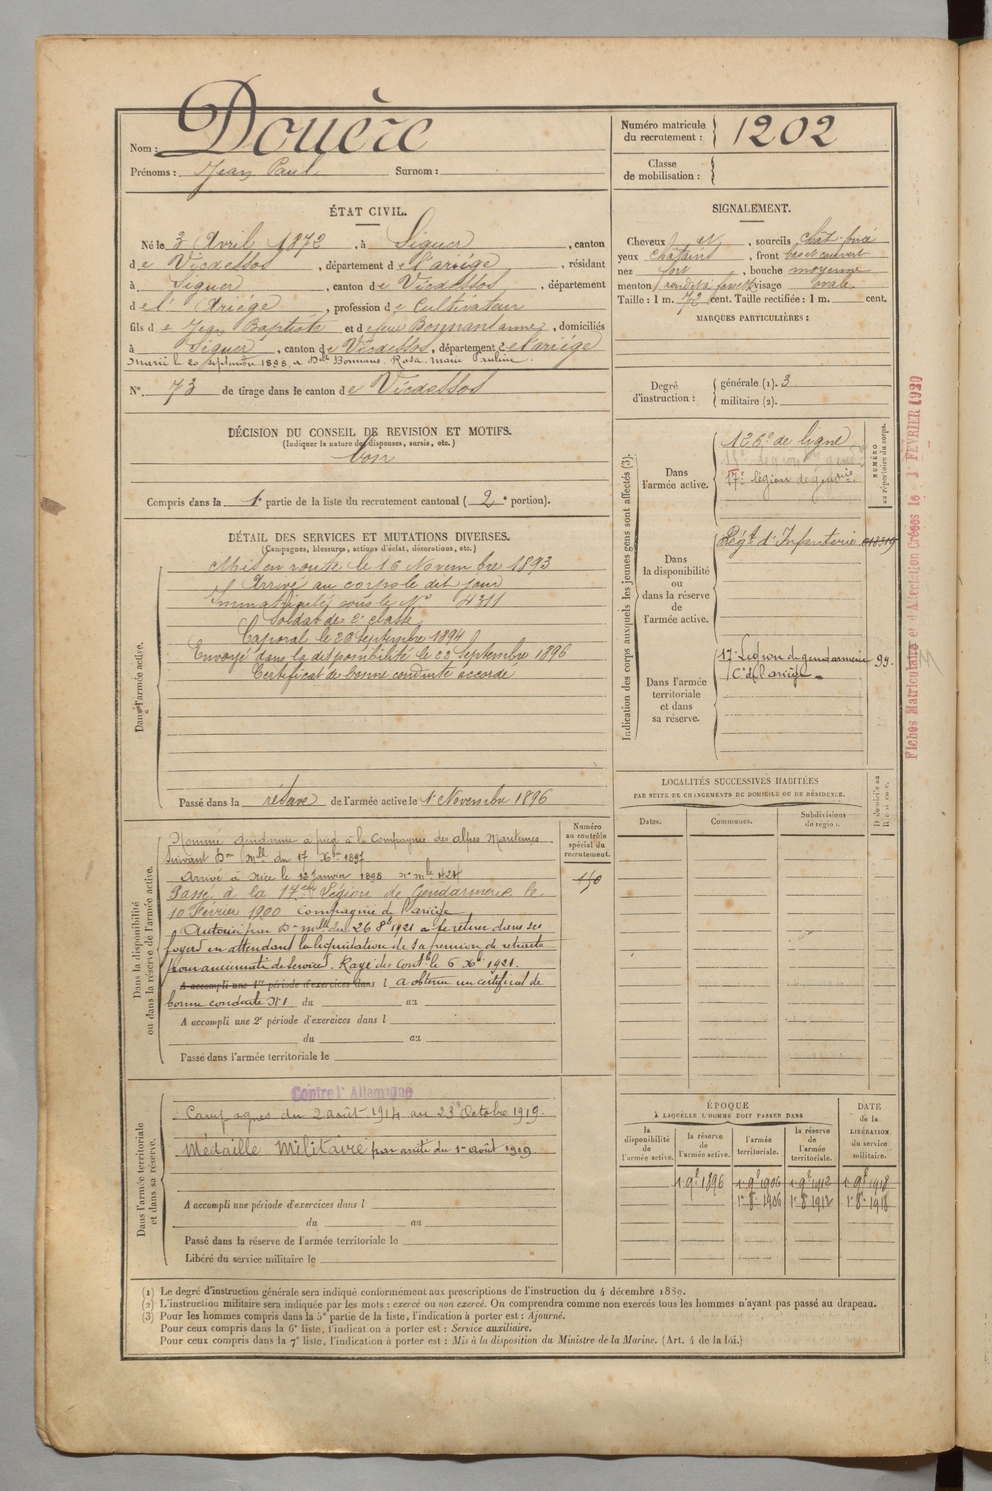 Nom : Douère
Prénoms : Jean Paul Surnom :
Numéro matricule du recrutement : 1202
Classe de mobilisation :
ÉTAT CIVIL.
Né le 3 Avril 1872, à Siguer, canton
de Vicdessos, département de l'ariége, résidant
à Siguer, canton de Vicdessos, département
de l'Ariége, profession de Cultivateur
fils de Jean Baptiste et de feue Bonnans anne, domiciliés
à Siguer, canton de Vicdessos, département de l'ariége
marié le 20 septembre 1898 a Delle Bonnans Rosa marie Pauline.
N° 73 de tirage dans le canton de Vicdessos
DÉCISION DU CONSEIL DE REVISION ET MOTIFS.
(Indiquer la nature des dispenses, sursis, etc.)
bon
Compris dans la 1e partie de la liste du recrutement cantonal (2e portion).
DÉTAIL DES SERVICES ET MUTATIONS DIVERSES.
(Campagnes, blessures, actions d'éclat, décorations, etc.)
Dans l'armée active.
Mis en route le 16 Novembre 1893
Arrivé au corps le dit jour
Immatriculé sous le N° 4311
Soldat de 2e classe
Caporal le 20 septembre 1894
Envoyé dans la disponibilité le 22 Septembre 1896
Certificat de bonne conduite accordé
Passé dans la réserve de l'armée active le 1 Novembre 1896
Dans la disponibilité ou dans la réserve de l'armée active.
Numéro au contrôle spécial du recrutement.
150
Nommé gendarme à pied à la Compagnie des alpes Maritimes
suivant Don Mlle du 17 Xbre 1897
Arrivé à Nice le 12 Janvier 1898 N° Mle 424
Passé à la 17e Légion de Gendarmerie le
10 Février 1900 Compagnie de l'ariége
Autorisé par Don mlle du 26 8bre 1921 a se retirer dans ses
foyers en attendant la liquidation de sa pension de retraite
pour ancienneté de services. Rayé des Contles le 6 Xbre 1921.
A accompli une 1re période d'exercices dans l a obtenu un certificat de
bonne conduite N° 1 du au
A accompli une 2e période d'exercices dans l
du au
Passé dans l'armée territoriale le
Dans l'armée territoriale et dans sa réserve.
Contre l'Allemagne
Campagnes du 2 août 1914 au 23 Octobre 1919.
Médaille Militaire par arrêté du 1er août 1919.
A accompli une période d'exercices dans l
du au
Passé dans la réserve de l'armée territoriale le
Libéré du service militaire le
SIGNALEMENT.
Cheveux, sourcils chat. foncé
yeux Châtains, front bas et couvert
nez fort, bouche moyenne
menton rond, visage ovale.
Taille : 1 m. 72 cent. Taille rectifiée : 1 m. cent.
MARQUES PARTICULIÈRES :
Degré d'instruction : générale (1). 3
militaire (2).
Indication des corps auxquels les jeunes gens sont affectés (3).
NUMÉRO au répertoire du corps.
Dans l'armée active.
126e de ligne
17e légion de gendrie
Dans la disponibilité ou dans la réserve de l'armée active.
Régt d'Infanterie
Dans l'armée territoriale et dans sa réserve.
17e Légion de gendarmerie 99.
Cie de l'ariége
Fiches Matriculaire et d'Affectation Créées le 1er FEVRIER 1920
LOCALITÉS SUCCESSIVES HABITÉES
PAR SUITE DE CHANGEMENTS DE DOMICILE OU DE RÉSIDENCE.
Dates. Communes. Subdivisions de région. D. domicile ou R. résidence.
ÉPOQUE
À LAQUELLE L'HOMME DOIT PASSER DANS
la disponibilité de l'armée active.
la réserve de l'armée active.
l'armée territoriale.
la réserve de l'armée territoriale.
DATE de la LIBÉRATION du service militaire.
1er 9bre 1896 1er 9bre 1906 1er 9bre 1912 1er 9bre 1918
1er 8bre 1906 1er 8bre 1912 1er 8bre 1918
(1) Le degré d'instruction générale sera indiqué conformément aux prescriptions de l'instruction du 4 décembre 1889.
(2) L'instruction militaire sera indiquée par les mots : exercé ou non exercé. On comprendra comme non exercés tous les hommes n'ayant pas passé au drapeau.
(3) Pour les hommes compris dans la 5e partie de la liste, l'indication à porter est : Ajourné.
Pour ceux compris dans la 6e liste, l'indication à porter est : Service auxiliaire.
Pour ceux compris dans la 7e liste, l'indication à porter est : Mis à la disposition du Ministre de la Marine. (Art. 4 de la loi.)